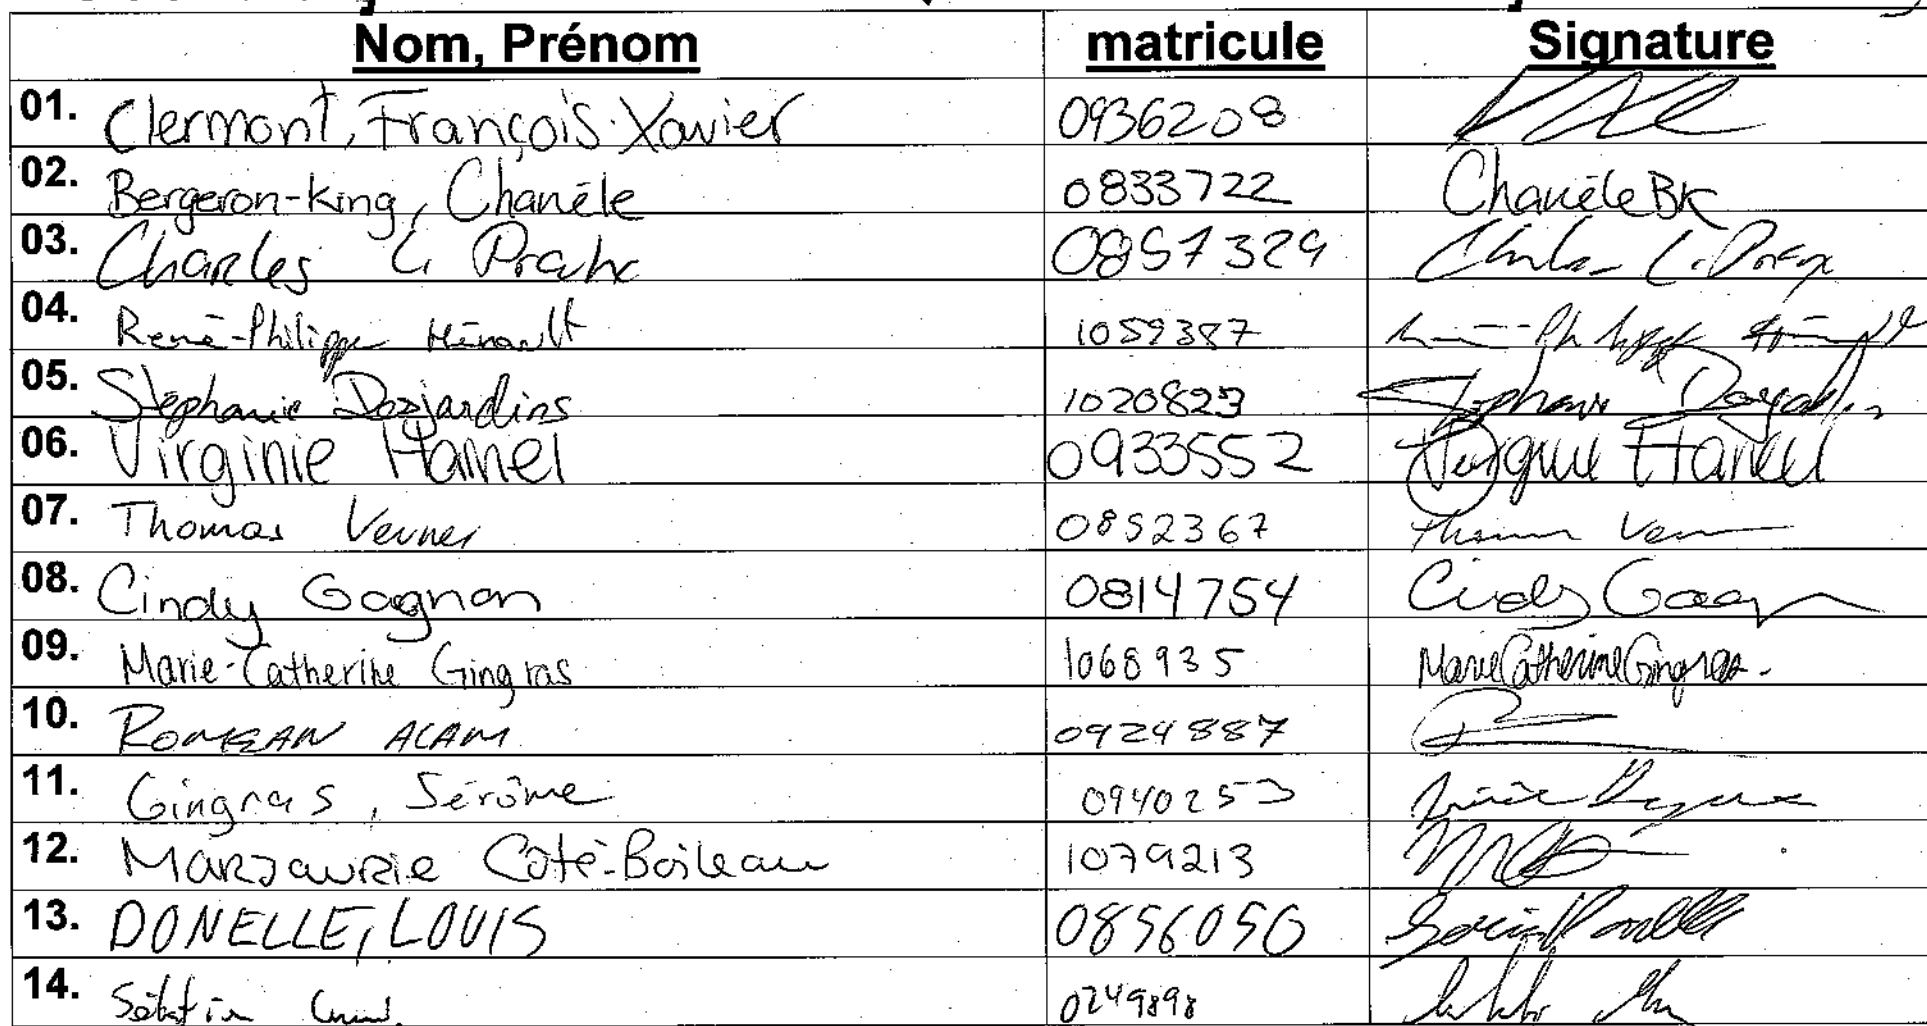 Nom, Prénom matricule Signature
01. Clermont, François-Xavier 0936208
02. Bergeron-King, Chanèle 0833722 Chanèle BK
03. Charles 0857329
04. René-Philippe Hénault 1059387
05. Stéphanie Desjardins 1020823 Stéphanie Desjardins
06. Virginie Hamel 0933552 Virginie Hamel
07. Thomas Verner 0852367 Thomas
08. Cindy Gagnon 0814754 Cindy
09. Marie-Catherine Gingras 1068935 Marie Catherine Gingras
10. ALAM 0924887
11. Gingras, Jérôme 0940253
12. Côté-Boileau 1079213
13. DONELLE, LOUIS 0856050
14. 0249898